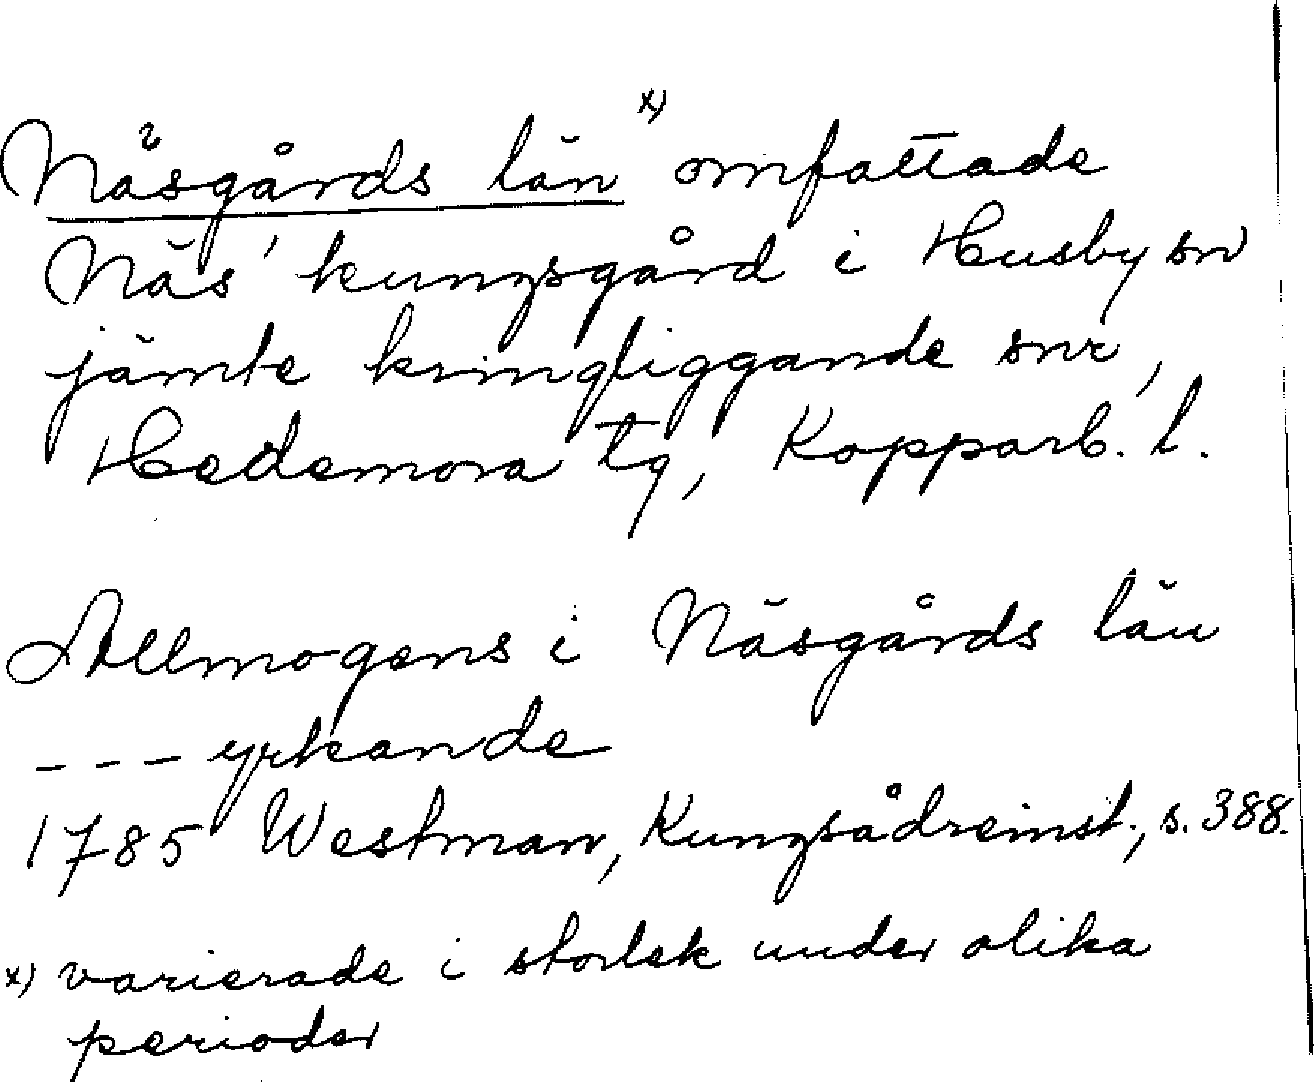 Näsgårds län x) omfattade
Näs' kungsgård i Husby sn
jämte kringliggande snr,
Hedemora tg, Kopparb. l.
Allmogens i Näsgårds län
--- yrkande
1785 Westman, Kungsådreinst., s. 388.
x) varierade i storlek under olika
perioder